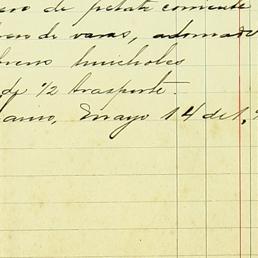 de petate corriente
de varas, adornado
huicholes
de 1/2 trasporte.
Mayo 14 de 1,